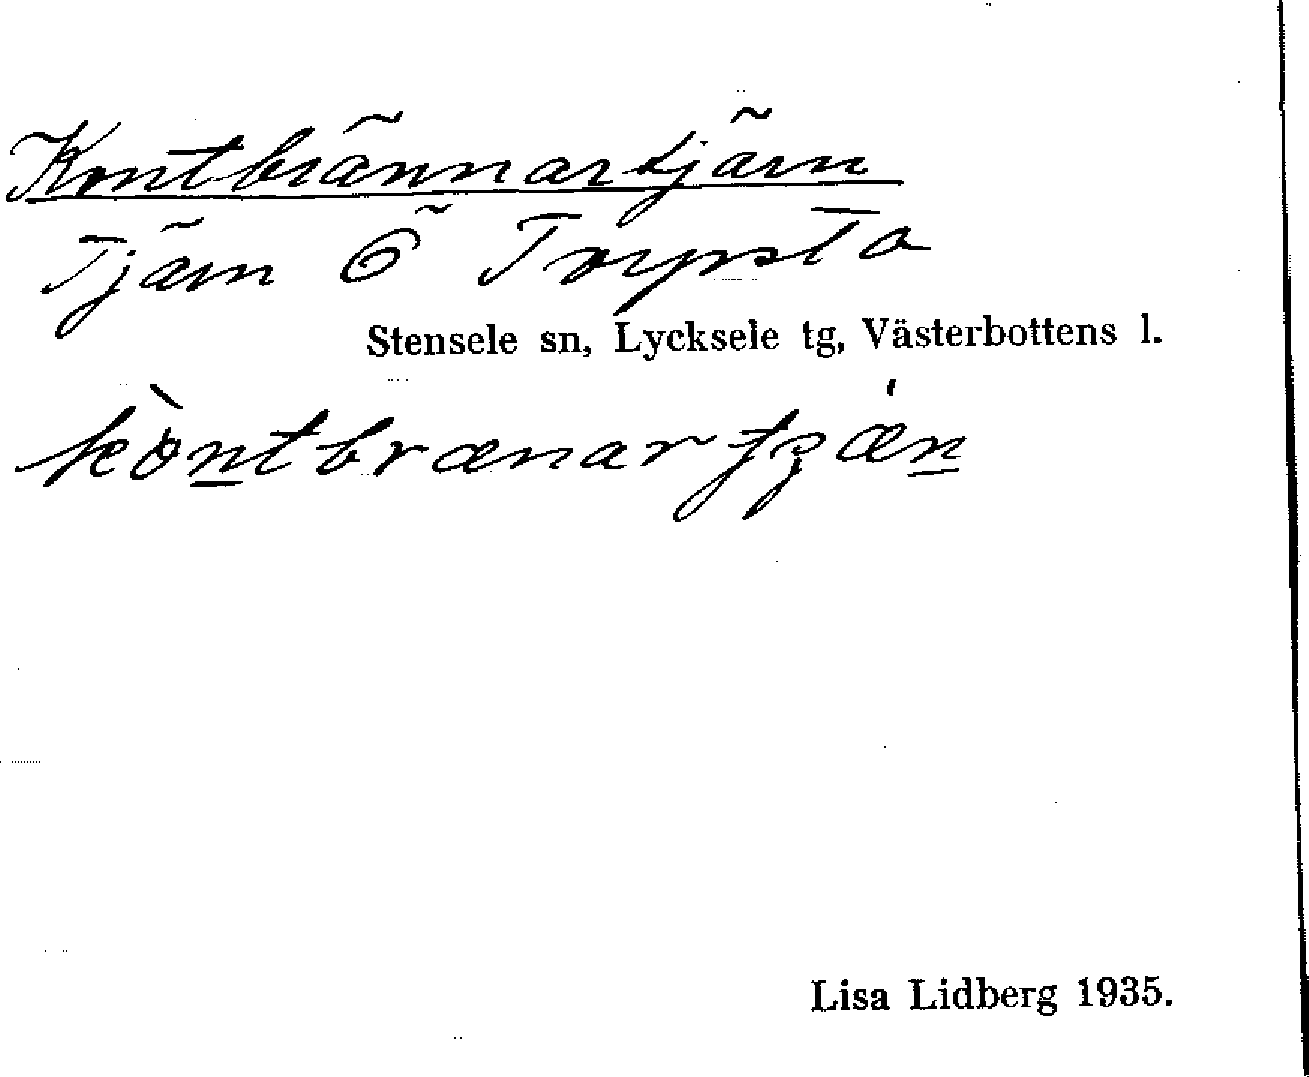 Kontbrännartjärn
Tjärn Ö Torpsta
Stensele sn, Lycksele tg, Västerbottens l.
Lisa Lidberg 1935.